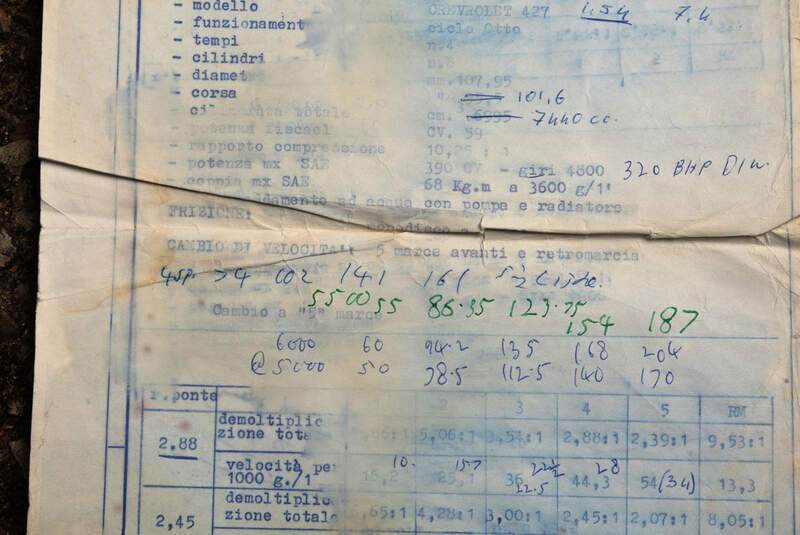 - modello CREVROLET 427 1.54 7.4
- funzionament ciclo Otto
- tempi n.4
- cilindri n.8
- diamet mm.107,95
- corsa 101,6
totale cm. 6995 7440 cc.
- potenza fiscal CV. 59
- rapporto compressione 10,25 : 1
- potenza mx SAE 390 - giri 4800 320 BHP DIN.
- coppia mx SAE 68 Kg.m a 3600 g/1'
ad acqua con pompa e radiatore
FRIZIONE: monodisco a
CAMBIO DI VELOCITA': 5 marce avanti e retromarcia
141 161
5500 55 86.35 123.75
Cambio a "5" marce 154 187
6000 60 94.2 135 168 204
@ 5000 50 78.5 112.5 140 170
r.ponte
2 3 4 5 RM
2.88 demoltiplic
zione tota 5,06:1 3,54:1 2,88:1 2,39:1 9,53:1
velocità pe 10. 15.7 22½ 28
1000 g./1 18,2 25,1 36 44,3 54 (34) 13,3
22.5
demoltiplic
2,45 zione totale ,65:1 4,28:1 3,00:1 2,45:1 2,07:1 8,05:1